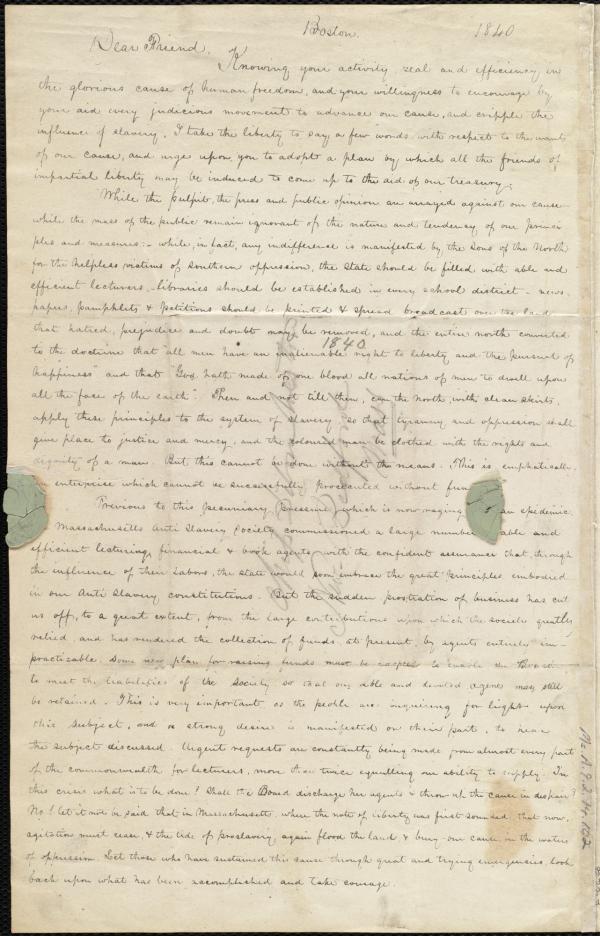 Boston. 1840
Dear Friend.
Knowing your activity, zeal and efficiency in
the glorious cause of human freedom, and your willingness to encourage by
your aid every judicious movement to advance our cause, and cripple the
influence of slavery, I take the liberty to say a few words with respect to the wants
of our cause, and urge upon you to adopt a plan by which all the friends of
impartial liberty may be induced to come up to the aid of our treasury.
While the pulpit, the press and public opinion are arrayed against our cause
while the mass of the public remain ignorant of the nature and tendency of our princi
ples and measures:- while, in fact, any indifference is manifested by the sons of the North
for the helpless victims of southern oppression, the state should be filled with able and
efficient lecturers,- libraries should be established in every school district - news-
papers, pamphlets & petitions should be printed & spread broadcast over the land
that hatred, prejudice and doubt may be removed, and the entire north converted
1840
to the doctrine that "all men have an inalienable right to liberty and the pursuit of
happiness" and that "God hath made of one blood all nations of men to dwell upon
all the face of the earth". Then and not till then, can the North, with clean skirts,
apply these principles to the system of slavery, so that tyranny and oppression shall
give place to justice and mercy, and the coloured man be clothed with the rights and
dignity of a man. But this cannot be done without the means. This is emphatically
an enterprise which cannot be successfully prosecuted without
Previous to this pecuniary pressure, which is now raging an epidemic
Massachusetts Anti Slavery Society commissioned a large number able and
efficient lecturing, financial & book agents with the confident assurance that, through
the influence of their labors, the state would soon embrace the great principles embodied
in our Anti Slavery constitutions. But the sudden prostration of business has cut
us off, to a great extent, from the large contributions upon which the society greatly
relied, and has rendered the collection of funds, at present, by agents entirely im-
practicable. Some new plan for raising funds must be adopted to enable the Board
to meet the liabilities of the Society so that our able and devoted agents may still
be retained. This is very important as the people are inquiring for light upon
this subject, and a strong desire is manifested on their part, to hear
the subject discussed. Urgent requests are constantly being made from almost every part
of the commonwealth for lecturers, more than twice equalling our ability to supply. In
this crisis what is to be done? Shall the Board discharge her agents & throw up the cause in despair?
No! let it not be said that in Massachusetts, where the note of liberty was first sounded, that now,
agitation must cease, & the tide of proslavery again flood the land & bury our cause in the waters
of oppression. Let those who have sustained this cause through great and trying emergencies, look
back upon what has been accomplished and take courage.